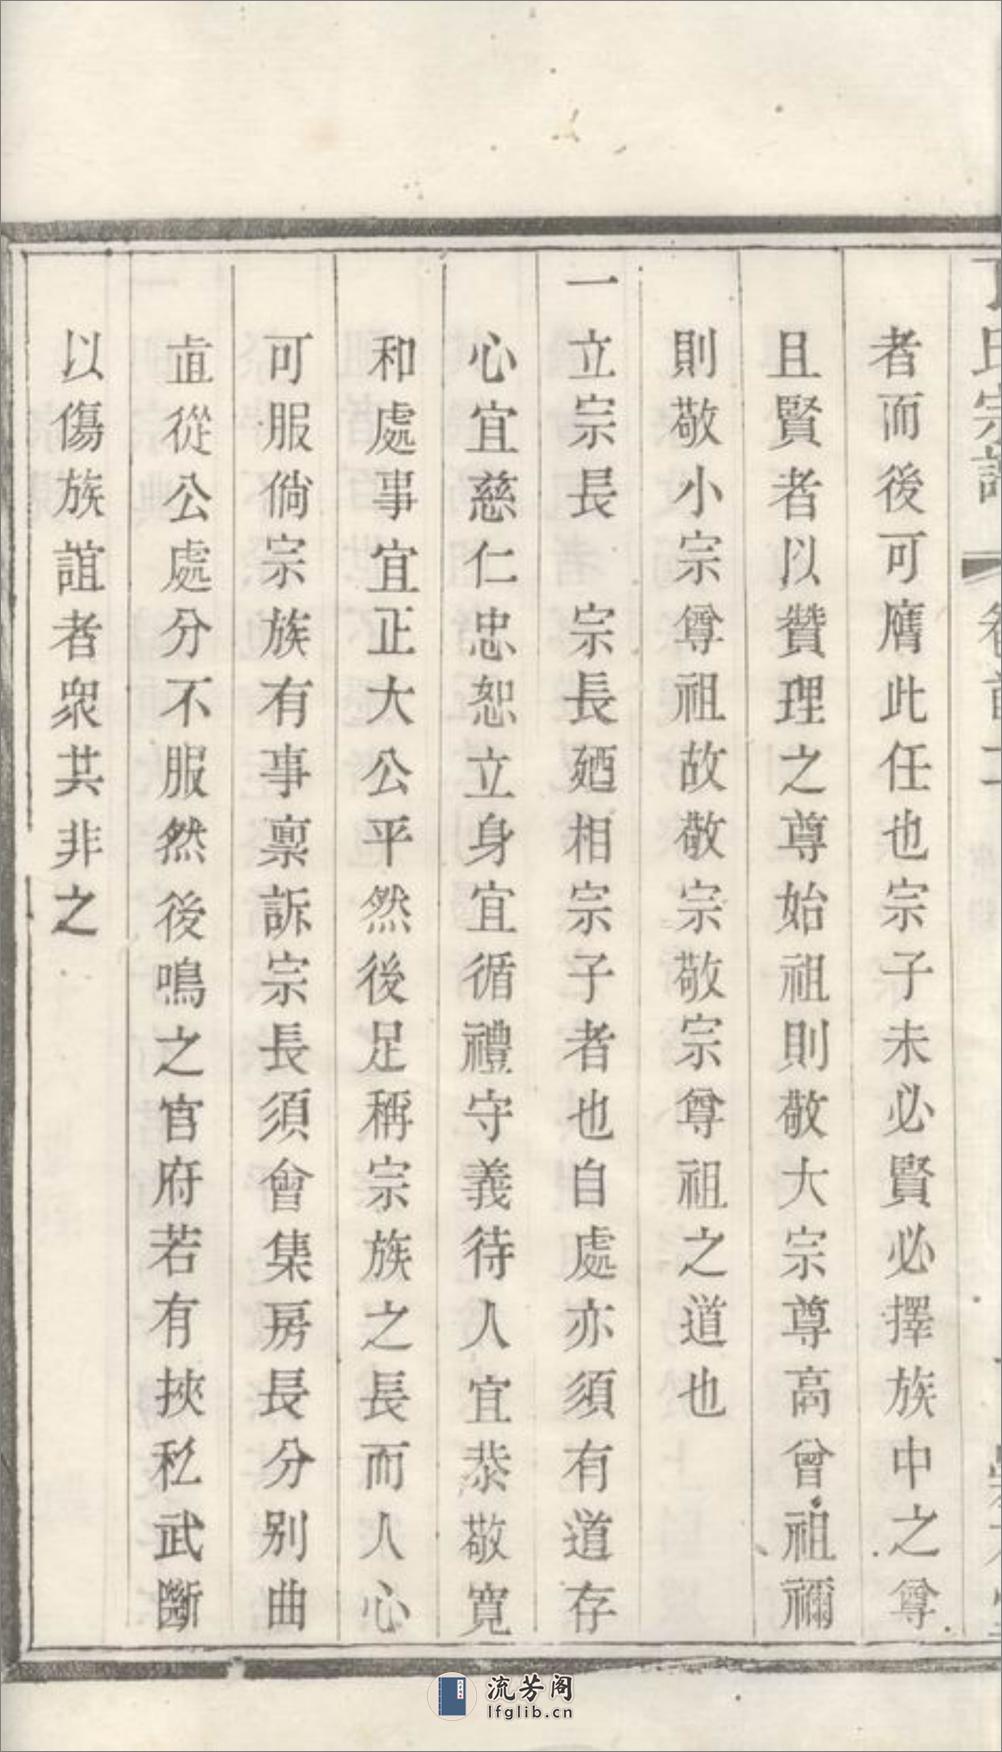 氏宗譜 卷首
者而後可膺此任也宗子未必賢必擇族中之尊
且賢者以贊理之尊始祖則敬大宗尊高曾祖禰
則敬小宗尊祖故敬宗敬宗尊祖之道也
一立宗長 宗長廼相宗子者也自處亦須有道存
心宜慈仁忠恕立身宜循禮守義待人宜恭敬寬
和處事宜正大公平然後足稱宗族之長而人心
可服倘宗族有事禀訴宗長須會集房長分别曲
直從公處分不服然後鳴之官府若有挾私武斷
以傷族誼者衆共非之
流芳阁
lfglib.cn